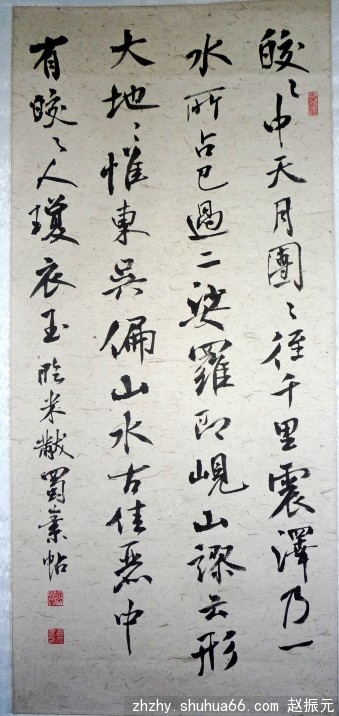 皎々中天月團々徑千里震澤乃一
水所占已過二娑羅即峴山謬云形
大地々惟東吳偏山水古佳麗中
有皎々人瓊衣玉臨米黻蜀素帖
zhzhy.shuhua66.com 赵振元